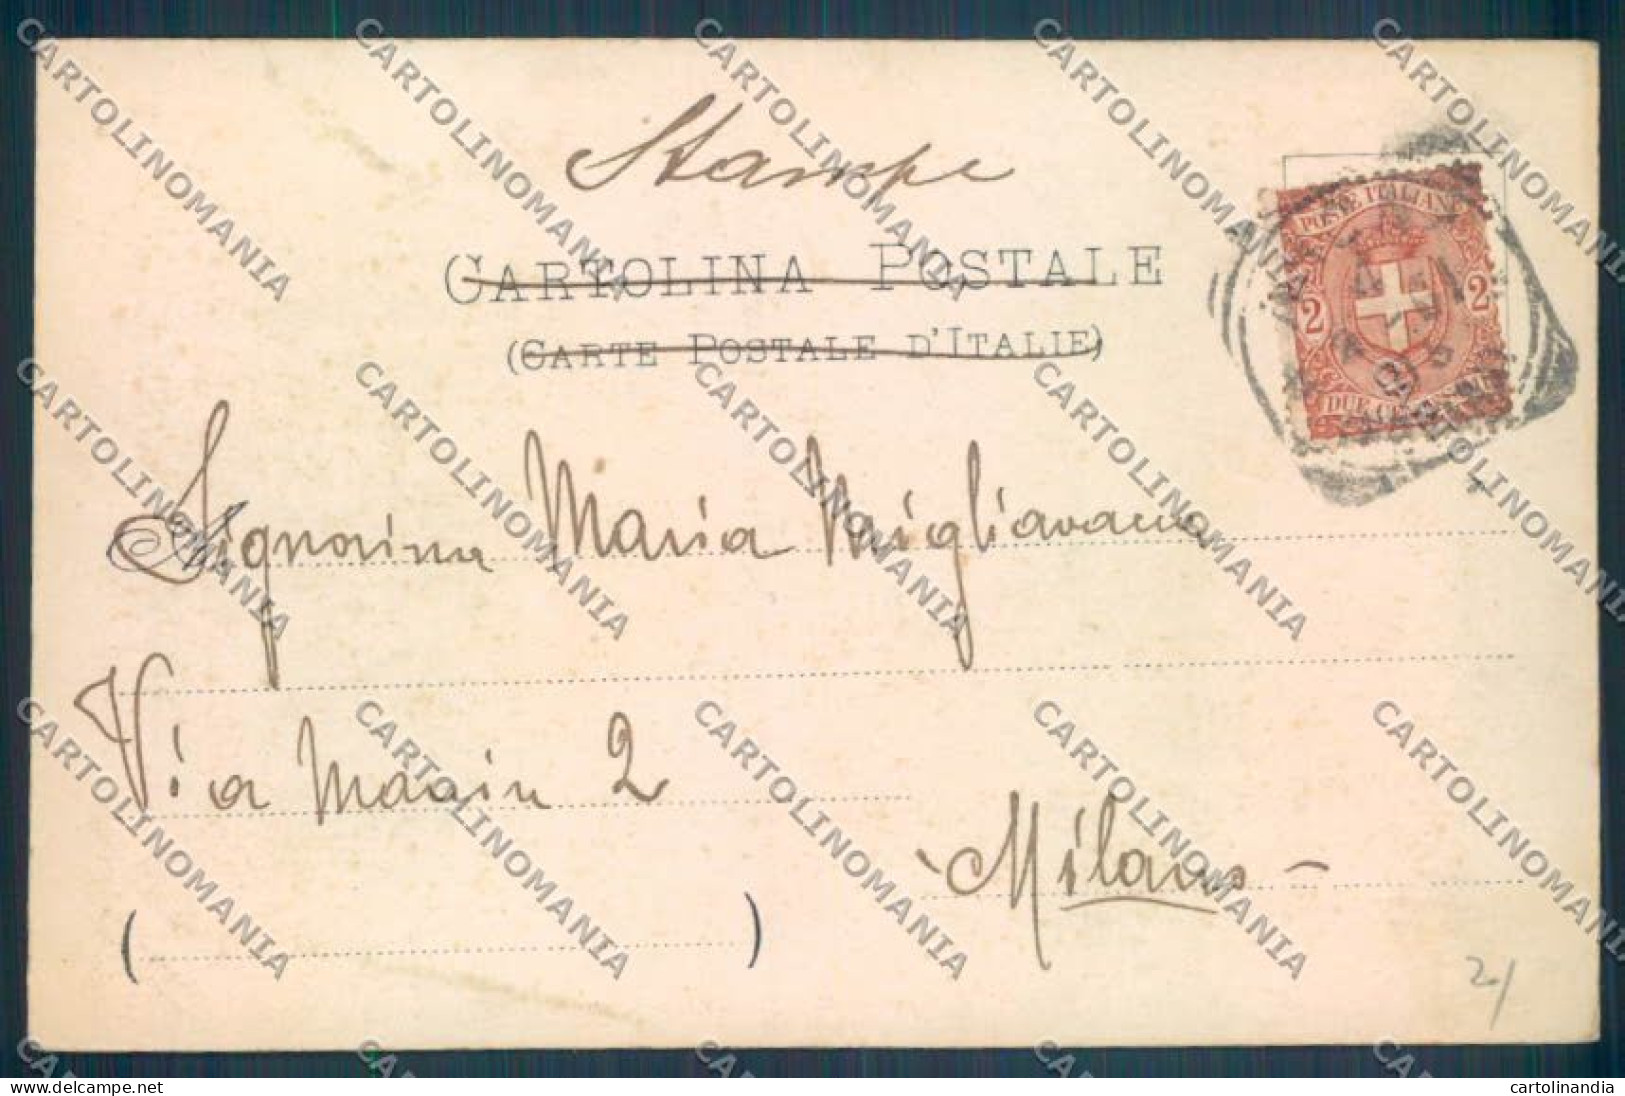 Stampe
CARTOLINA POSTALE
(CARTE POSTALE D'ITALIE)
POSTE ITALIANE
2 2
DUE CENTESIMI
Signorina Maria Migliavacca
Via Marin 2
- Milano -
( )
2/
CARTOLINOMANIA
www.delcampe.net
cartolinandia